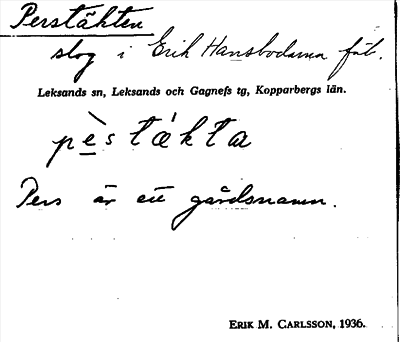 Perstäkten
slog i Erik Hansbodarna fäb.
Leksands sn, Leksands och Gagnefs tg, Kopparbergs län.
pè̠stákta
Pers är ett gårdsnamn.
ERIK M. CARLSSON, 1936.